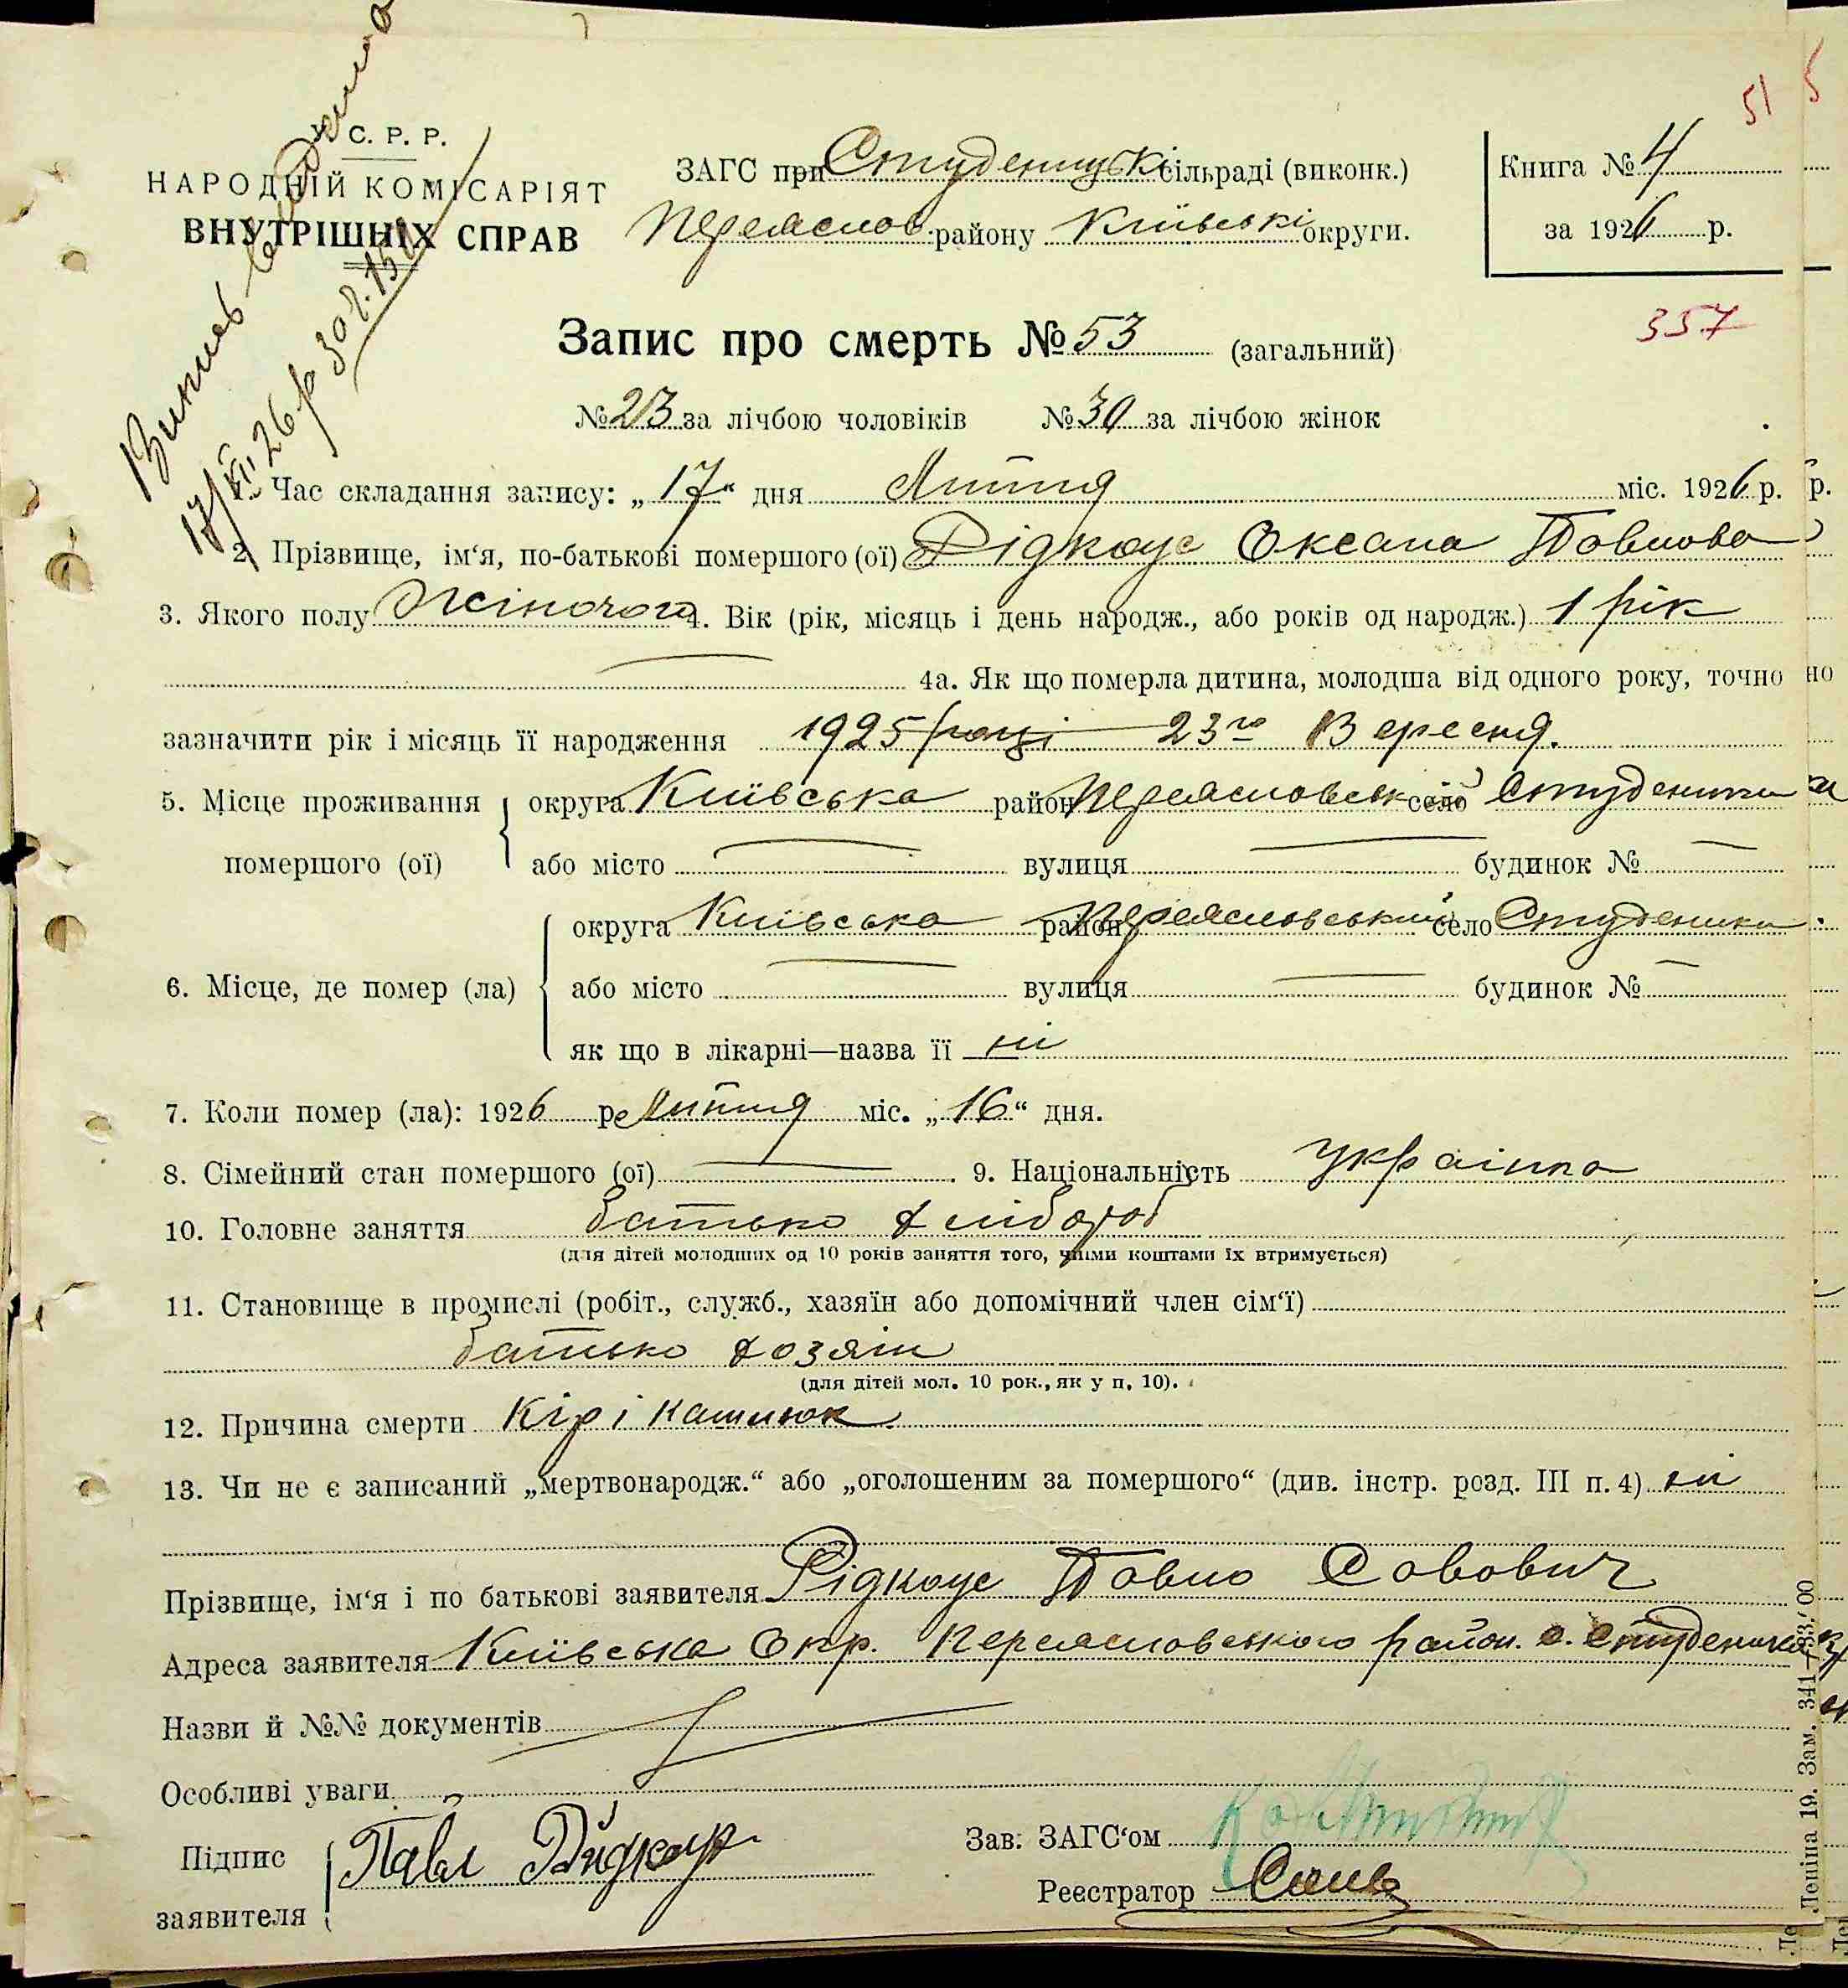 51
С. Р. Р.
НАРОДНІЙ КОМІСАРІЯТ
ВНУТРІШНІХ СПРАВ
ЗАГС при Студеницькі сільраді (виконк.)
Переяслов. району Київські округи.
Книга № 4
за 1926 р.
357
Запис про смерть № 53 (загальний)
№ 23 за лічбою чоловіків № 30 за лічбою жінок
1. Час складання запису: „17“ дня Липня міс. 1926 р.
2. Прізвище, ім‘я, по-батькові помершого (ої) Рідкоус Оксана Павлова
3. Якого полу Жіночого 4. Вік (рік, місяць і день народж., або років од народж.) 1 рік
4а. Як що померла дитина, молодша від одного року, точно
зазначити рік і місяць її народження 1925 році 23го Вересня.
5. Місце проживання помершого (ої)
округа Київська район Переясловськ село Студеники
або місто вулиця будинок №
6. Місце, де помер (ла)
округа Київська район Переясловський село Студеники
або місто вулиця будинок №
як що в лікарні—назва її ні
7. Коли помер (ла): 1926 р. Липня міс. „16“ дня.
8. Сімейний стан помершого (ої) 9. Національність Українка
10. Головне заняття батько хлібороб
(для дітей молодших од 10 років заняття того, чиїми коштами їх втримується)
11. Становище в промислі (робіт., служб., хазяїн або допомічний член сім‘ї)
батько хозяін
(для дітей мол. 10 рок., як у п. 10).
12. Причина смерти Кір і кашлюк
13. Чи не є записаний „мертвонародж.“ або „оголошеним за помершого“ (див. інстр. розд. III п. 4) ні
Прізвище, ім‘я і по батькові заявителя Рідкоус Павло Савович
Адреса заявителя Київська Окр. Переясловського район. с. Студеники
Назви й №№ документів
Особливі уваги
Підпис заявителя Павл Рідкоус
Зав. ЗАГС‘ом
Реєстратор
Леніна 19. Зам. 341